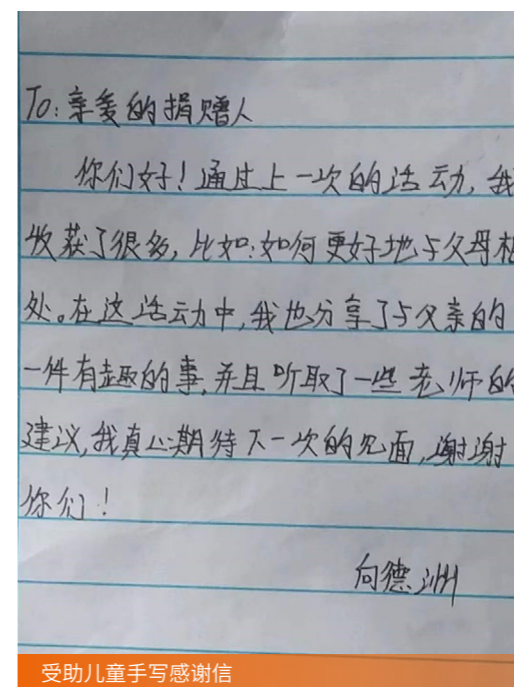 To:亲爱的捐赠人
你们好!通过上一次的活动,我
收获了很多,比如:如何更好地与父母相
处。在这活动中,我也分享了与父亲的
一件有趣的事,并且听取了一些老师的
建议,我真心期待下一次的见面,谢谢
你们!
向德洲
受助儿童手写感谢信